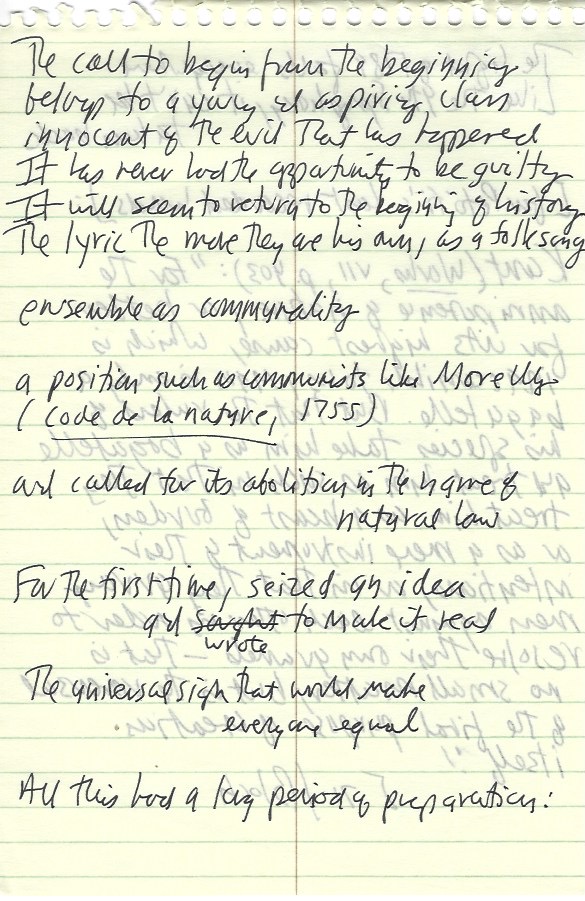 The call to begin from the beginning
belongs to a young and aspiring class
innocent of the evil That has happened
It has never had the opportunity to be guilty
It will seem to return to the beginning of history
The lyric The more They are his own, as a folk song
ensemble as communality
a position such as communists like Morelly
(Code de la nature, 1755)
and called for its abolition in The name of
natural law
For the first time, seized an idea
and sought to make it real
wrote
The universal sign that would make
everyone equal
All this had a long period of preparation: